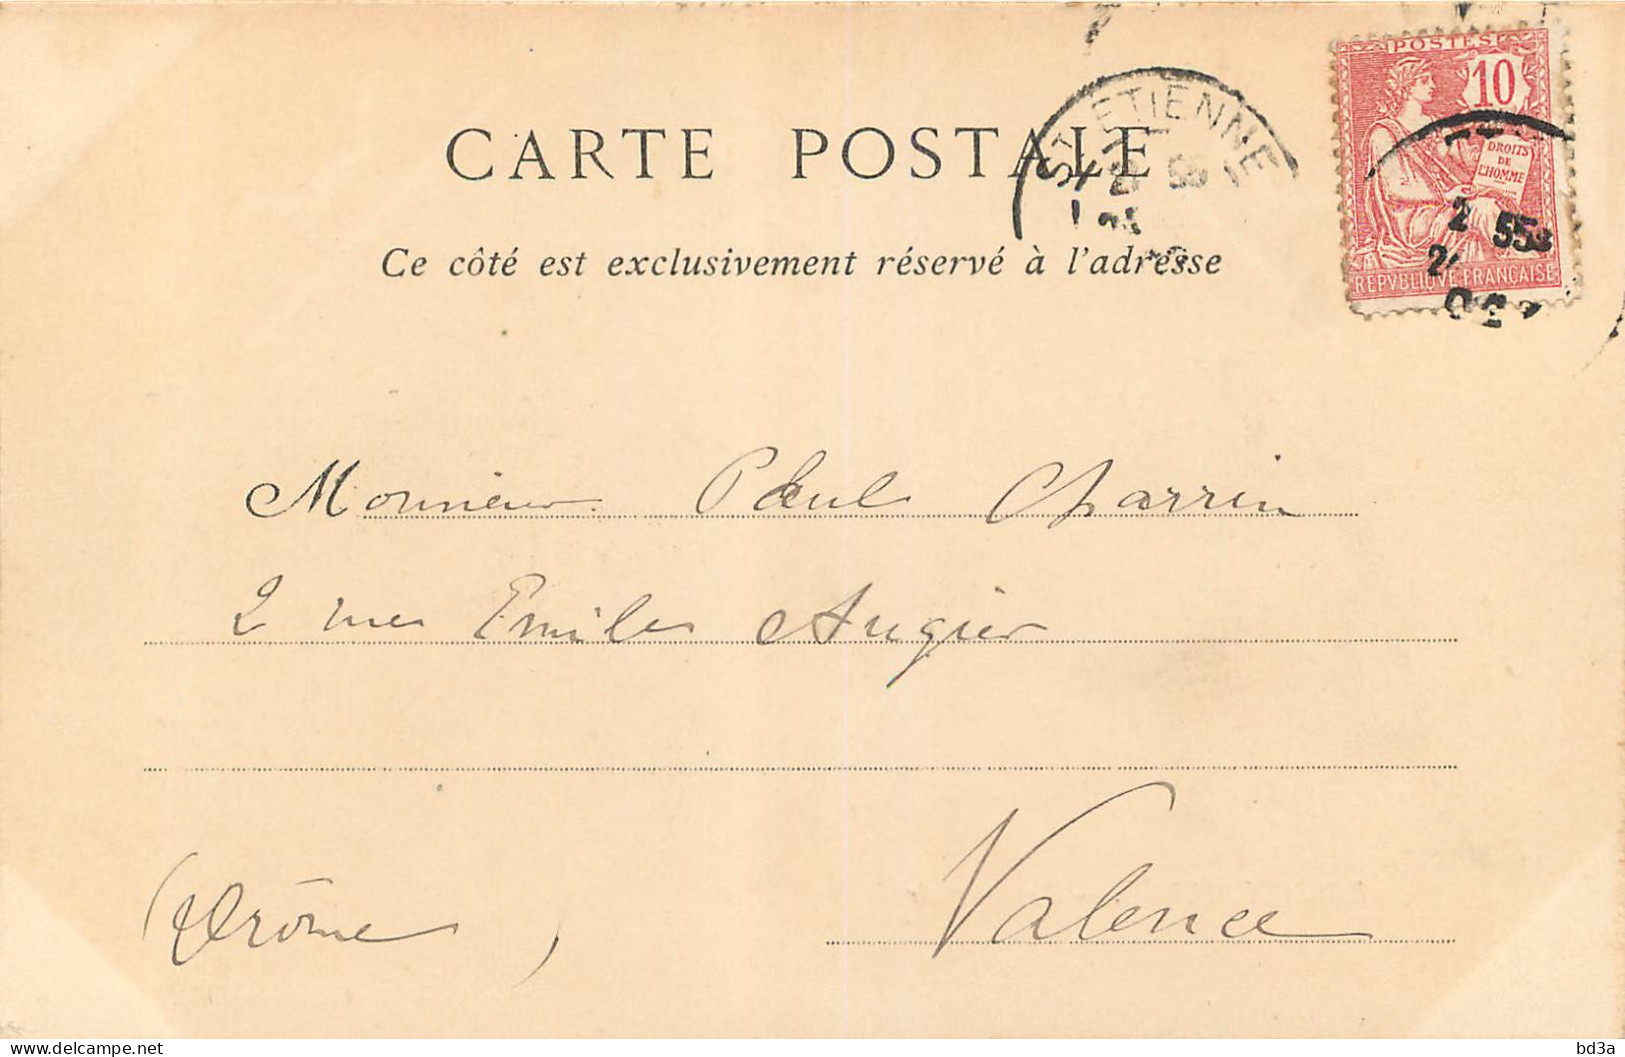 POSTES
10
DROITS
DE
L'HOMME
REPVBLIQVE FRANÇAISE
ST ETIENNE
CARTE POSTALE
Ce côté est exclusivement réservé à l'adresse
Monsieur Paul Charrin
2 rue Emile Augier
Valence
(Drôme)
delcampe.net
bd3a